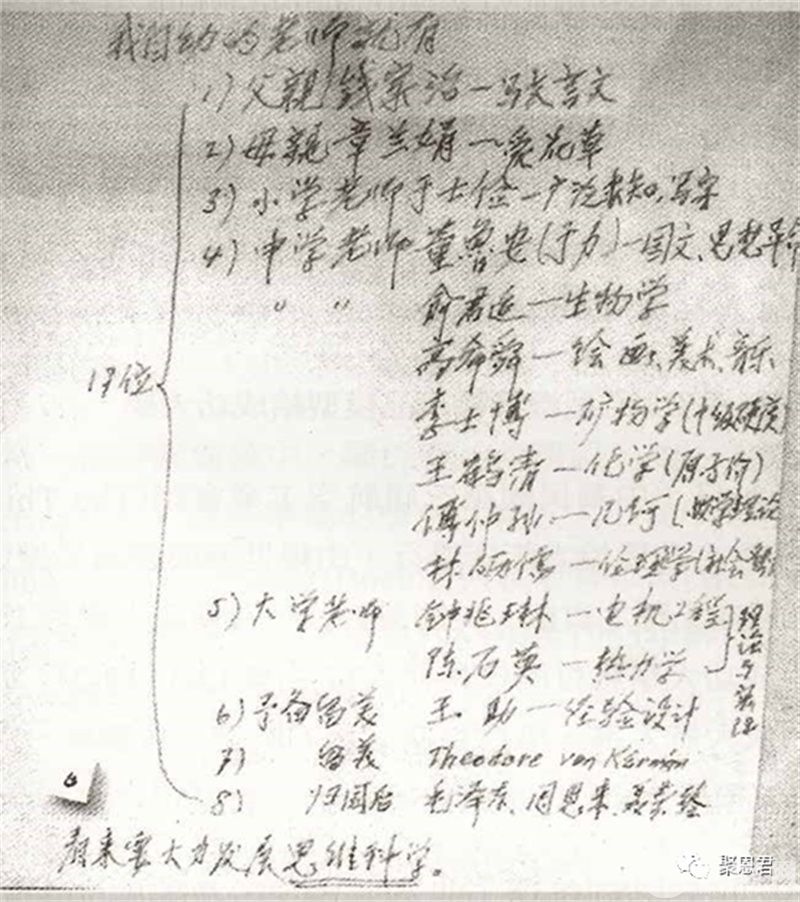 我自幼的老师就有
1) 父亲钱家治—写文言文
2) 母亲章兰娟—爱花草
3) 小学老师于士俭—广泛求知,写字
4) 中学老师 董鲁安(于力)—国文、思想革命
〃 〃 俞君适—生物学
高希舜—绘画、美术、音乐
李士博—矿物学(十级硬度)
17位
王鹤清—化学(原子价)
傅仲孙—几何(数学理论
林砺儒—伦理学(社会
5) 大学老师 钟兆琳—电机工程
陈石英—热力学
理论与实际
6) 予备留美 王助—经验设计
7) 留美 Theodore von Kármán
8) 归国后 毛泽东、周恩来、聂荣臻
看来要大力发展思维科学。
6
聚恩君